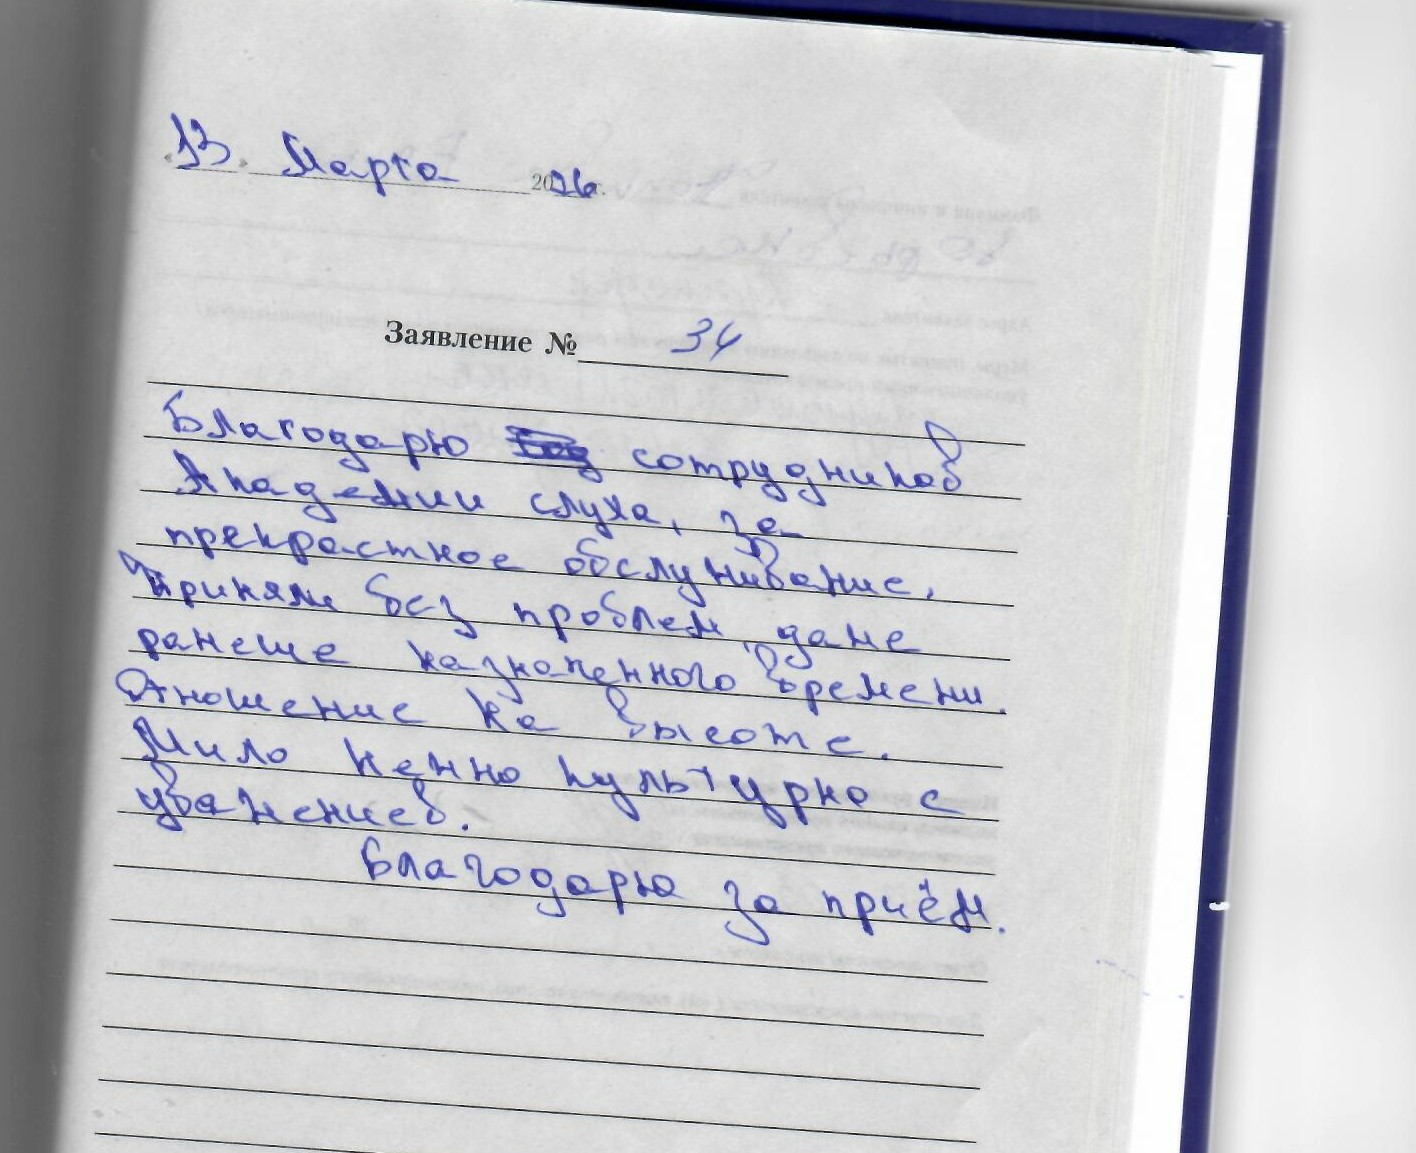 «13» Марта 2026г.
Заявление № 34
Благодарю сотрудников
Академии слуха, за
прекрастное обслуживание,
Приняли без проблем, даже
ранеше назначенного времени.
Отношение на высоте.
Мило нежно культурно с
уважением.
Благодарю за приём.